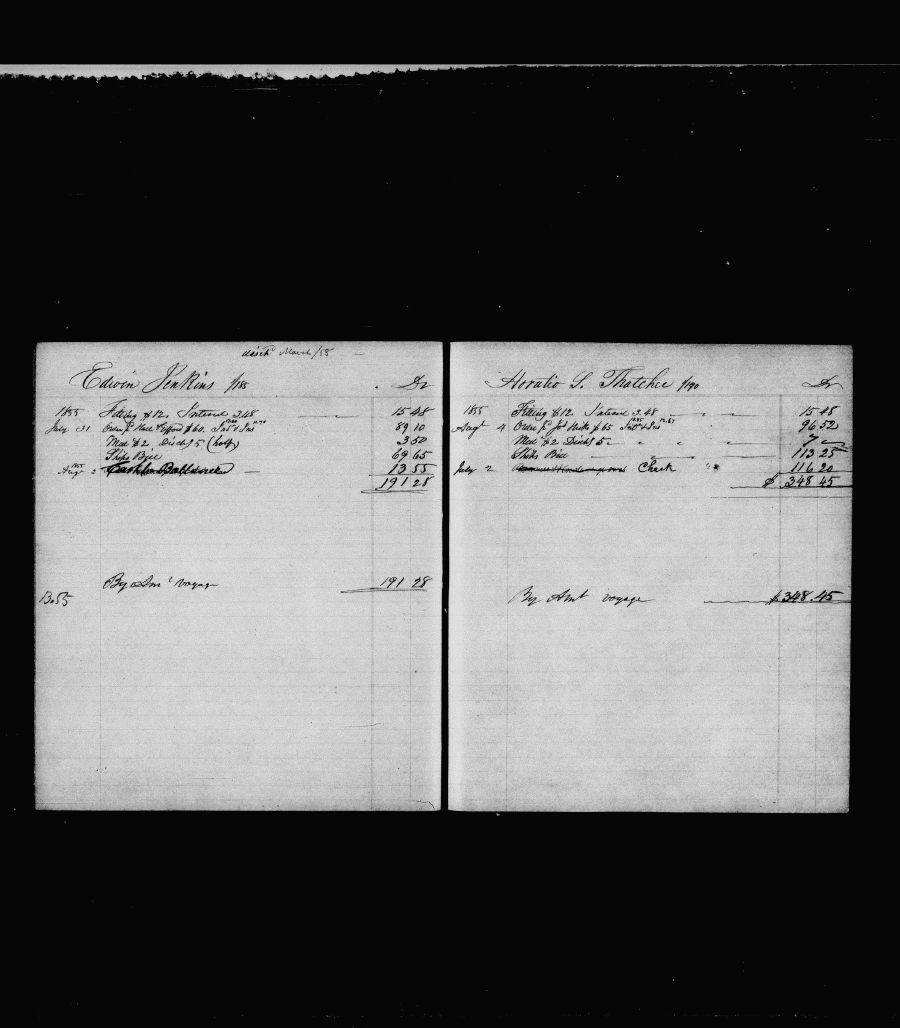 March/58
Edwin Jenkins 1/185 Dr
1855 Fitting $12. Interest 3.48 15 48
July 31 Order $60. 89 10
Med $2 Disch 5 (half) 3 50
Ships Bill 69 65
Augt 2 13 55
191 28
By Amt voyage 191 28
13.55
Horatio S. Thatcher 1/190 Dr
1855 Fitting $12 Interest 3.48 15 48
Augt 4 Order $65 96 52
Med $2 Disch 5 " " " 7 —
Ships Bill 113 25
July 2 Check 116 20
$ 348 45
By Amt voyage $348.45